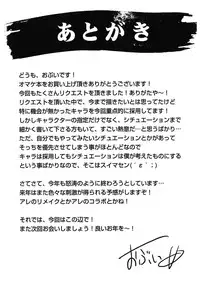 あとがき
どうも、おぶいです！
オマケ本をお買い上げ頂きありがとうございます！
今回もたくさんリクエストを頂きました！ありがたや～！
リクエストを頂いた中で、今まで描きたいとは思ってたけど
特に機会が無かったキャラを今回重点的に採用してます！
しかしキャラクターの指定だけでなく、シチュエーションまで
細かく書いて下さる方もいて、すごい熱意だ…と思うばかり…
ただ、自分でもやってみたいシチュエーションとかが
色々とあって、それを優先していたりするので
キャラは採用してもシチュエーションは僕が考えたものにする
という事ばかりになっています、そこはスイマセン(´ε｀;)
さてさて、今年も怒涛のように終わろうとしています…
来年はまた色々な刺激が得られる予感がしますぞ！
アレのリメイクとかアレのコラボとかね！
それでは、今回はこの辺で！
また次回お会いしましょう！良いお年を～！
おぶい